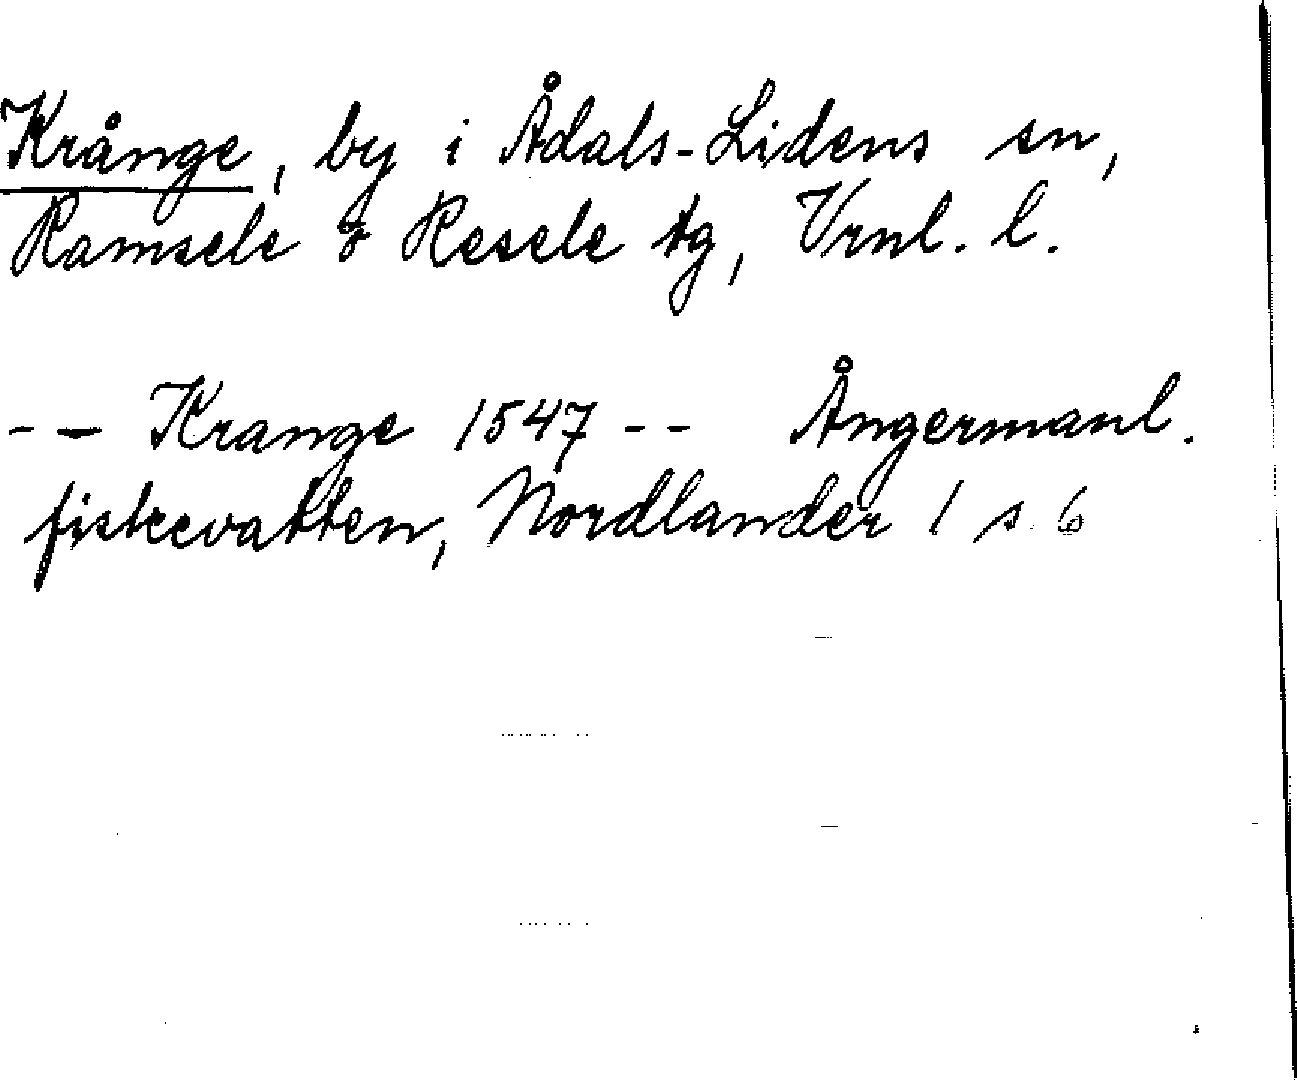 Krånge, by i Ådals-Lidens sn,
Ramsele o Resele tg, Vrnl. l.
-- Krange 1547 -- Ångermanl.
fiskevatten, Nordlander 1 s. 6